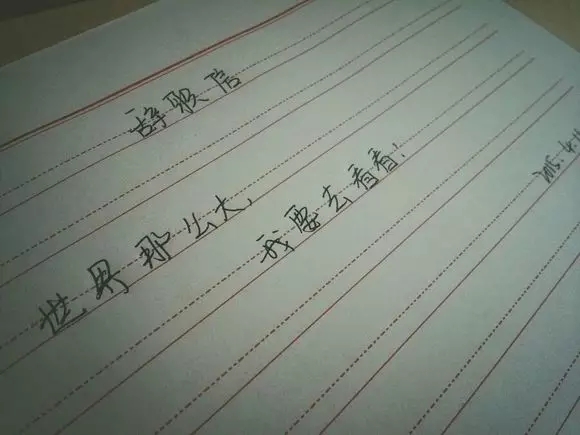 辞职信
世界那么大,
我要去看看!